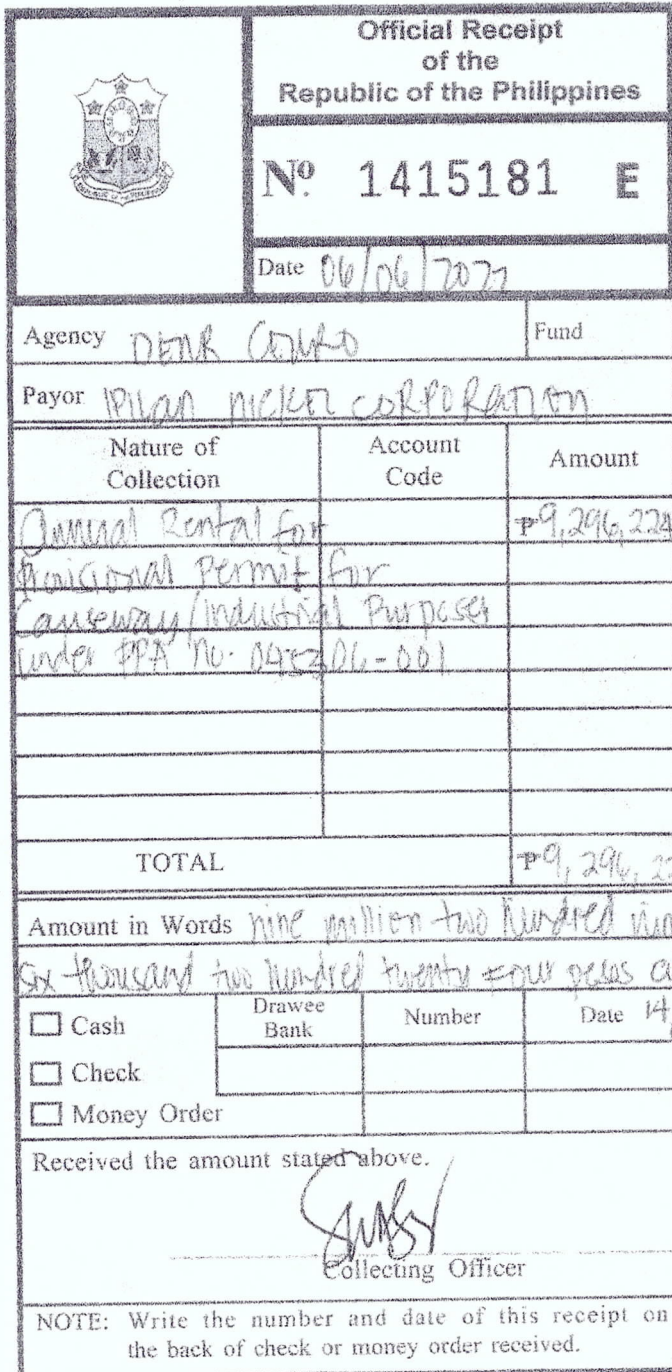 Official Receipt
of the
Republic of the Philippines
Nº 1415181 E
Date 06/06/2022
Agency DENR CENRO
Fund
Payor IPILAN NICKEL CORPORATION
Nature of Collection
Account Code
Amount
Annual Rental for ₱9,296,224
Provisional Permit for
Causeway/Industrial Purposes
under FPA No.
TOTAL ₱9,296,22
Amount in Words nine million two hundred nin
six thousand two hundred twenty four pesos a
Cash
Drawee Bank
Number
Date 14
Check
Money Order
Received the amount stated above.
Collecting Officer
NOTE: Write the number and date of this receipt on
the back of check or money order received.